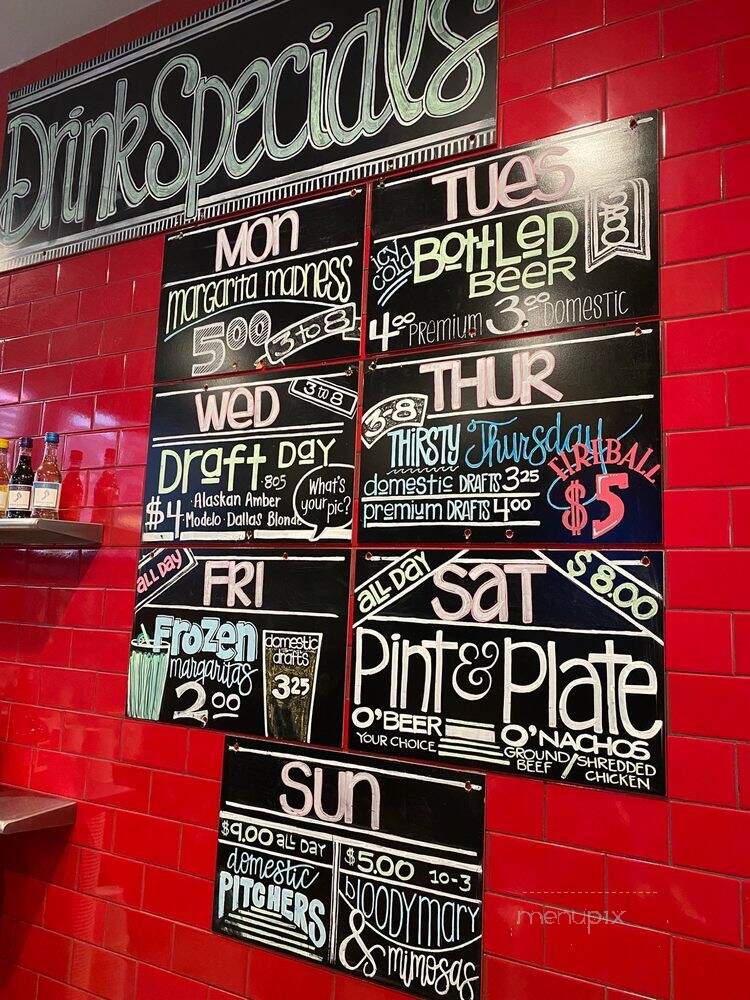 Drink Specials
MON
margarita madness
5⁰⁰ 3 to 8
TUES
icy cold BOttLeD BEER
4⁰⁰ PREMIUM 3⁰⁰ DOMESTIC
WED
3 to 8
Draft Day
805
$4 Alaskan Amber
Modelo Dallas Blonde
What's your pic?
THUR
3-8
THIRSTY Thursday
domestic DRAFTS 3²⁵
premium DRAFTS 4⁰⁰
FIREBALL
$5
ALL DAY
FRI
Frozen
margaritas
2⁰⁰
domestic
drafts
3²⁵
ALL DAY
SAT
$8.00
Pint & Plate
O'BEER
YOUR CHOICE
O'NACHOS
GROUND BEEF / SHREDDED CHICKEN
SUN
$9.00 ALL DAY
domestic
PITCHERS
$5.00 10-3
bloody mary
& mimosas
menupix